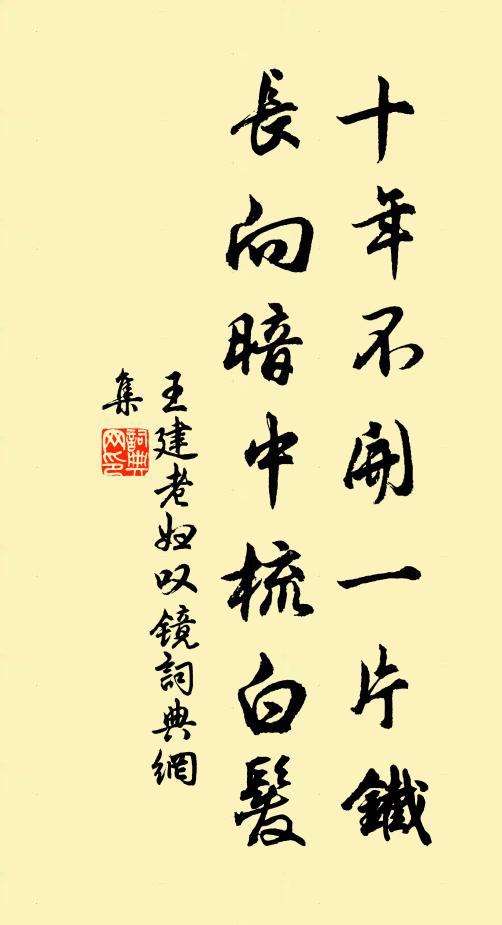 十年不開一片鐵
長向暗中梳白髮
王建老妇叹鏡詞典網
集
詞典
网印